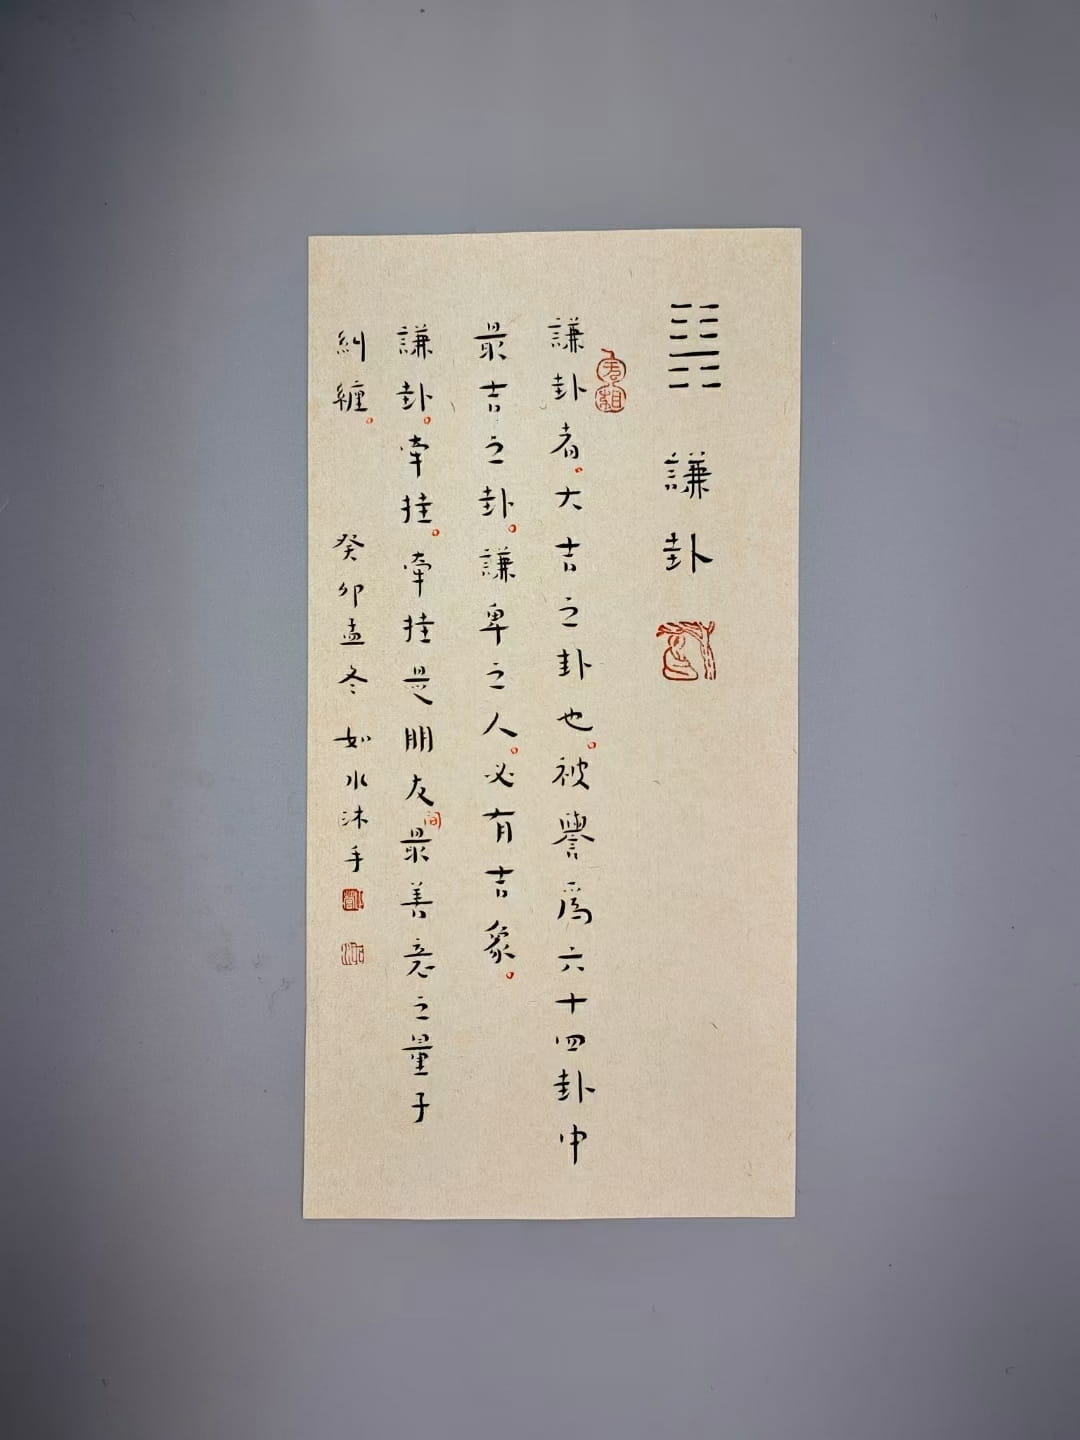 謙卦
謙卦者。大吉之卦也。被譽爲六十四卦中
最吉之卦。謙卑之人。必有吉象。
謙卦。牽挂。牽挂是朋友間最善意之量子
糾纏。 癸卯孟冬 如水沐手